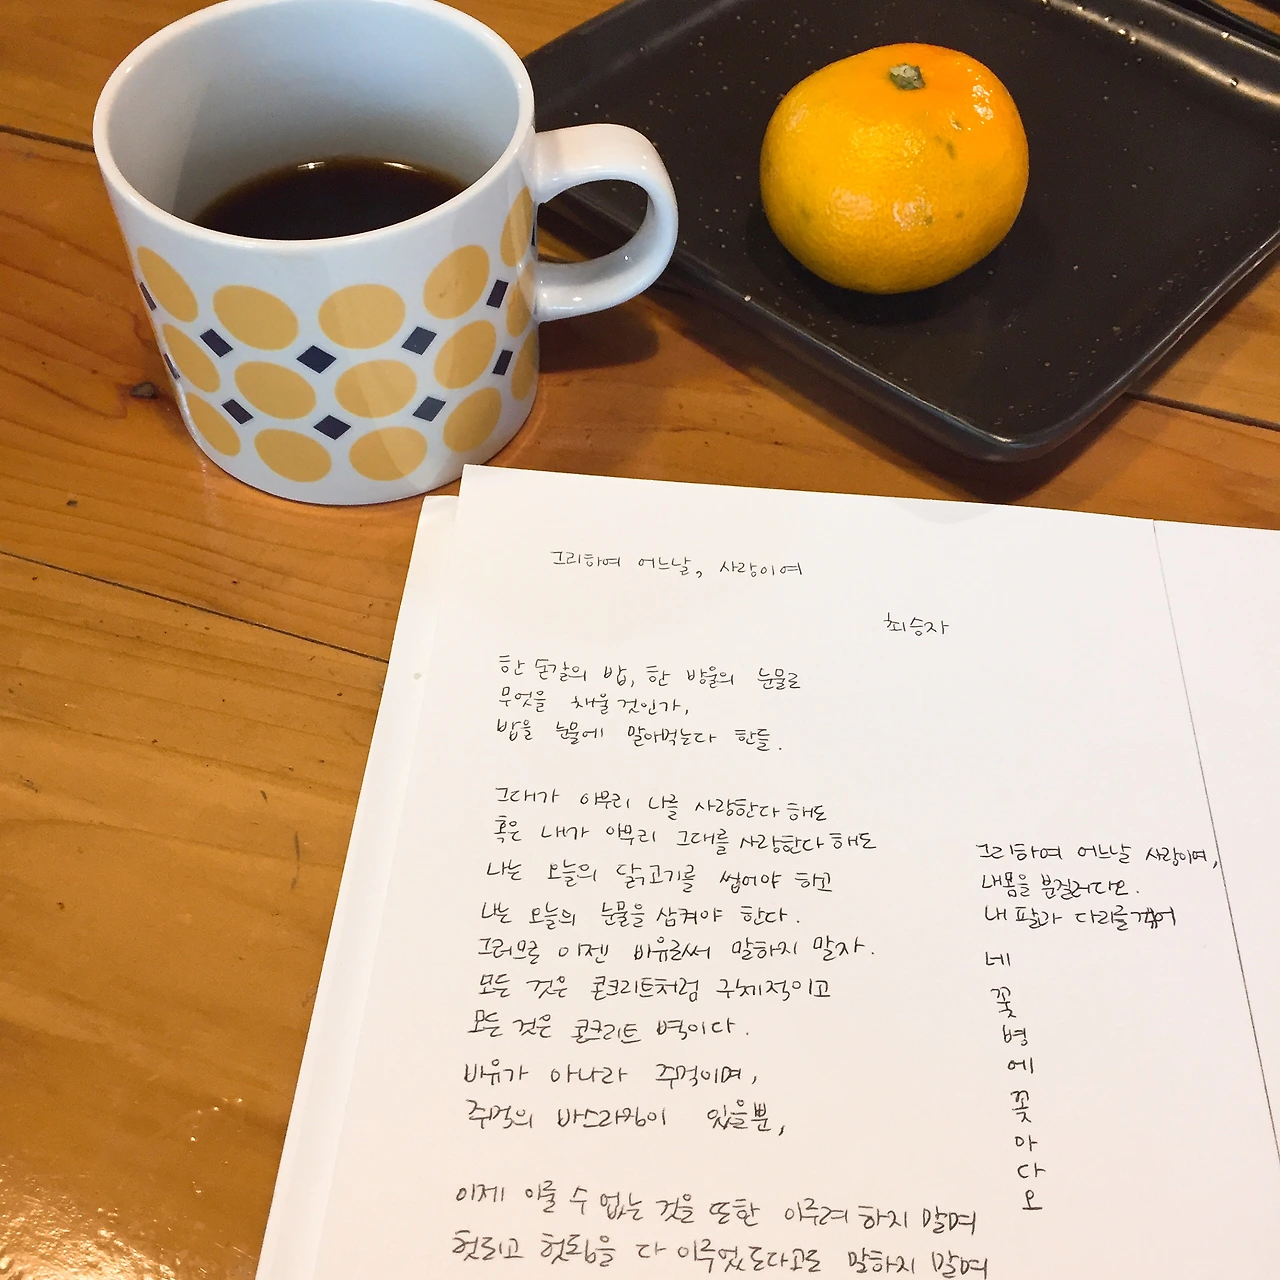 그리하여 어느날, 사랑이여
최승자
한 숟갈의 밥, 한 방울의 눈물로
무엇을 채울 것인가,
밥을 눈물에 말아먹는다 한들.
그대가 아무리 나를 사랑한다 해도
혹은 내가 아무리 그대를 사랑한다 해도
나는 오늘의 닭고기를 씹어야 하고
나는 오늘의 눈물을 삼켜야 한다.
그러므로 이젠 비유로써 말하지 말자.
모든 것은 콘크리트처럼 구체적이고
모든 것은 콘크리트 벽이다.
비유가 아니라 주먹이며,
주먹의 바스라짐이 있을 뿐,
이제 이룰 수 없는 것을 또한 이루려 하지 말며
헛되고 헛됨을 다 이루었도다고도 말하지 말며
그리하여 어느날 사랑이여,
내 몸을 분질러다오.
내 팔과 다리를 꺾어
네
꽃
병
에
꽂
아
다
오